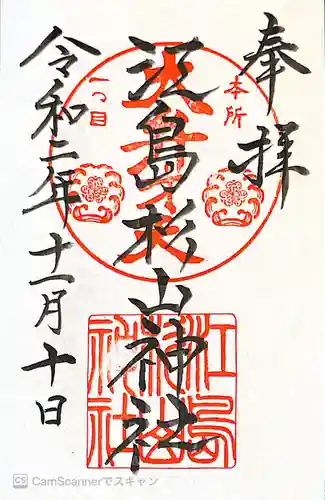 奉拝
本所
一つ目
江島杉山神社
江島杉山神社
令和二年十一月十日
CS CamScannerでスキャン